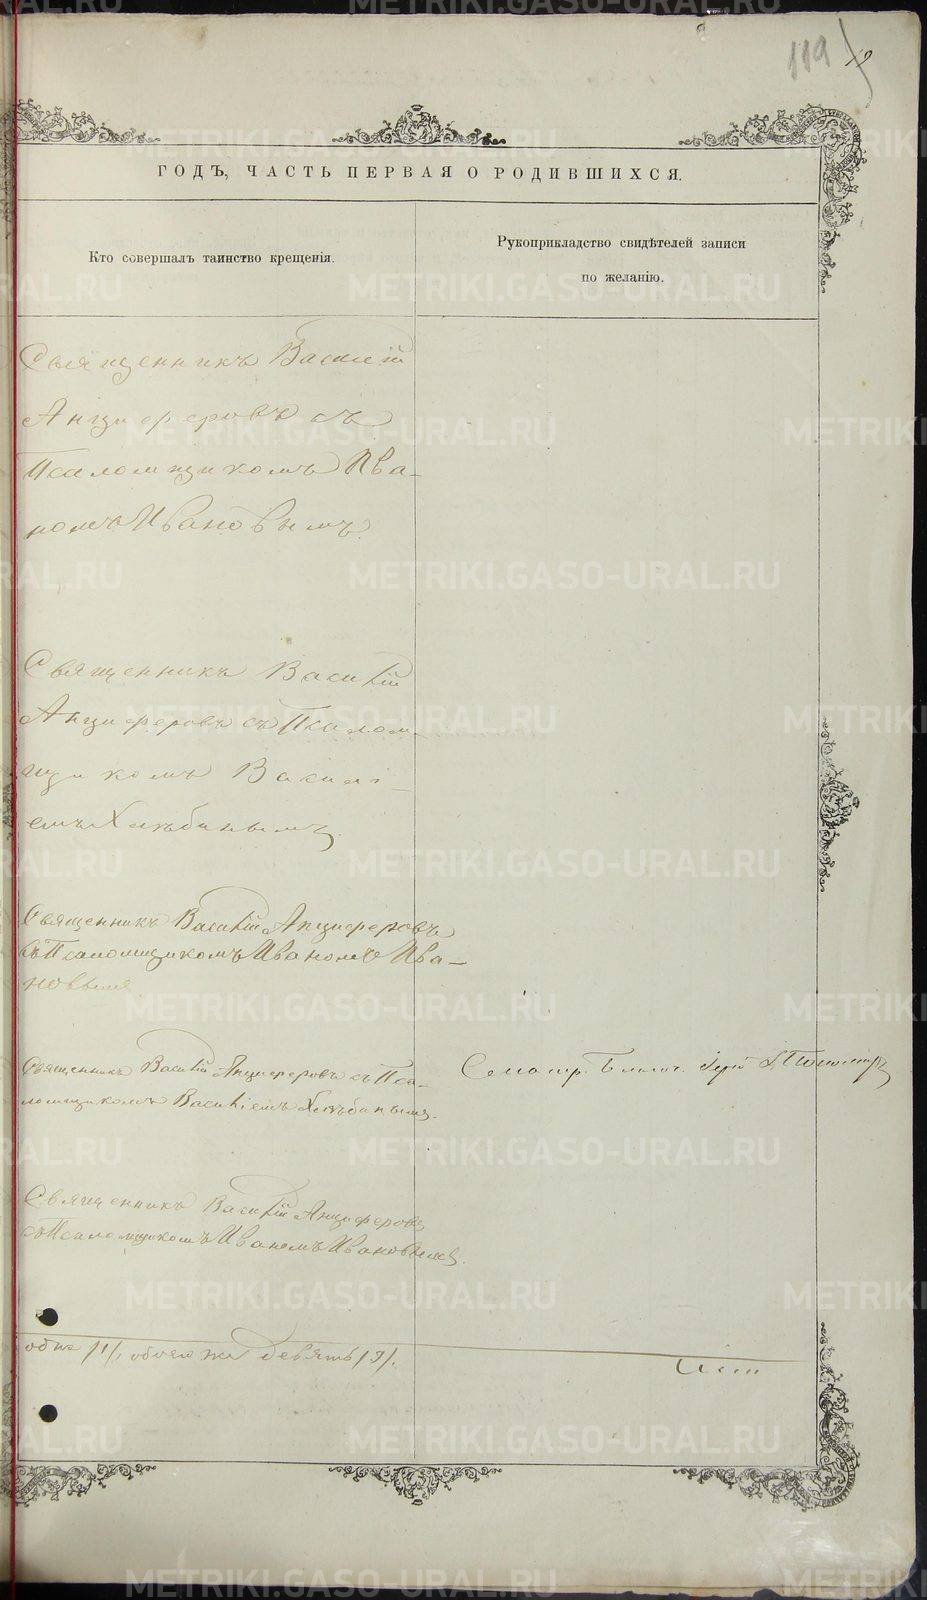 119
19
ГОДЪ, ЧАСТЬ ПЕРВАЯ О РОДИВШИХСЯ.
Кто совершалъ таинство крещенія.
Рукоприкладство свидѣтелей записи
по желанію.
Священникъ Василій
Анциферовъ съ
Псаломщикомъ Ива-
номъ Ивановымъ.
Священникъ Василій
Анциферовъ съ Псалом-
щикомъ Василі-
емъ Хлѣбинымъ.
Священникъ Василій Анциферовъ
съ Псаломщикомъ Иваномъ Ива-
новымъ
Священникъ Василій Анциферовъ съ Пса-
ломщикомъ Василіемъ Хлѣбинымъ.
Священникъ Василій Анциферовъ
съ Псаломщикомъ Иваномъ Ивановымъ.
девять /9/.
METRIKI.GASO-URAL.RU